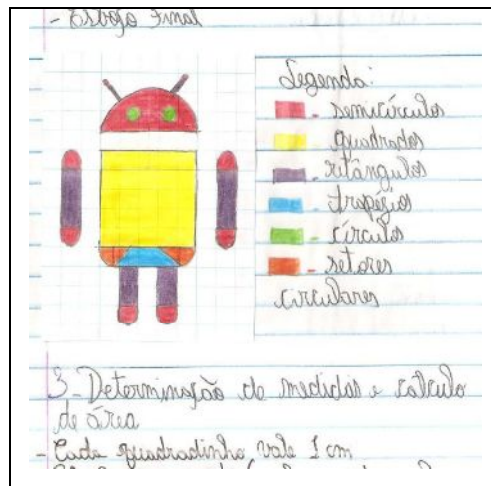 - Esboço Final
Legenda:
- semicírculos
- quadrados
- retângulos
- trapézios
- círculos
- setores
circulares
3 - Determinação de medidas e calculo
de área
- Cada quadradinho vale 1 cm